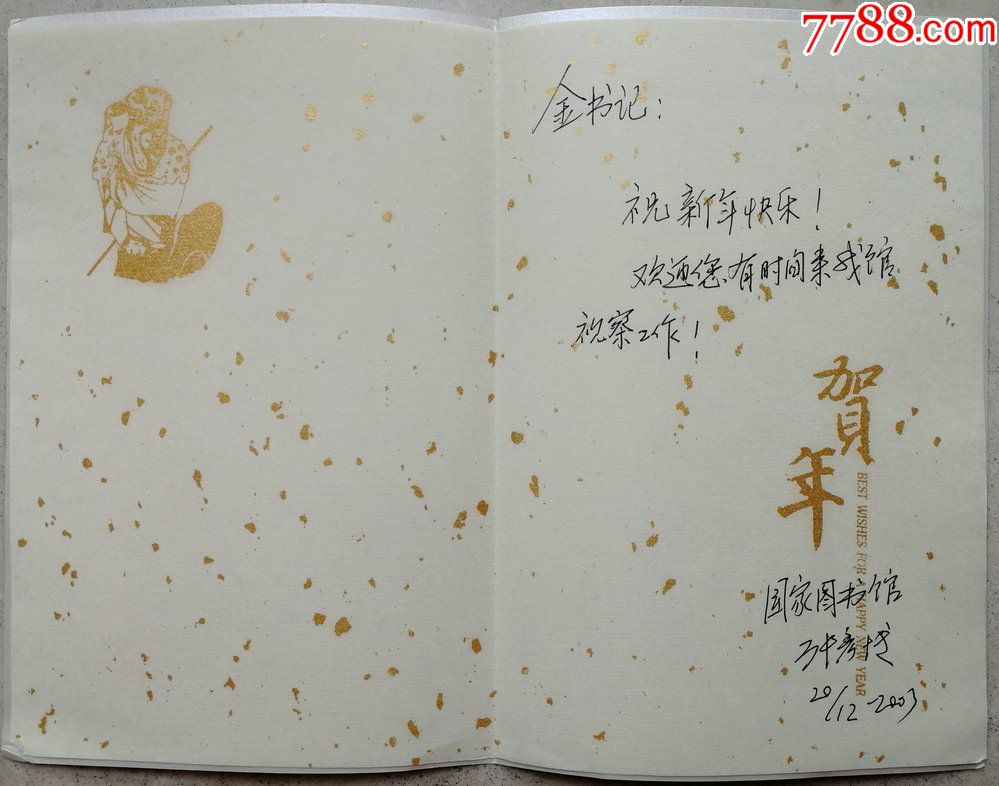 7788.com
金书记：
祝新年快乐！
欢迎您有时间来我馆
视察工作！
賀年
BEST WISHES FOR A HAPPY NEW YEAR
国家图书馆
20/12-2003